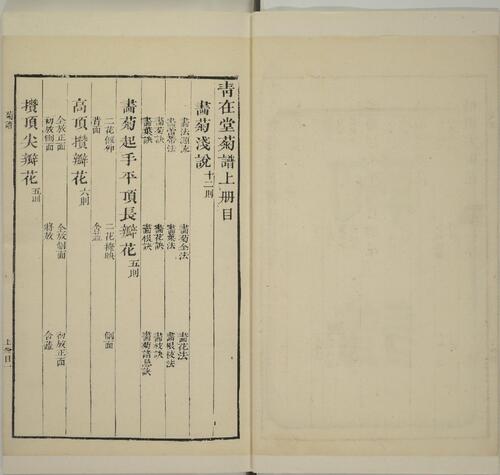 青在堂菊譜上册目
畫菊淺說十二則
畫法源流 畫菊全法 畫花法
畫蕾蒂法 畫葉法 畫根枝法
畫菊訣 畫花訣 畫枝訣
畫葉訣 畫根訣 畫菊諸忌訣
畫菊起手平頂長瓣花五則
二花偃仰 二花掩映 側面
背面 含蕊
高頂攢瓣花六則
全放正面 全放側面 初放正面
初放側面 將放 含蕊
攢頂尖瓣花五則
菊譜